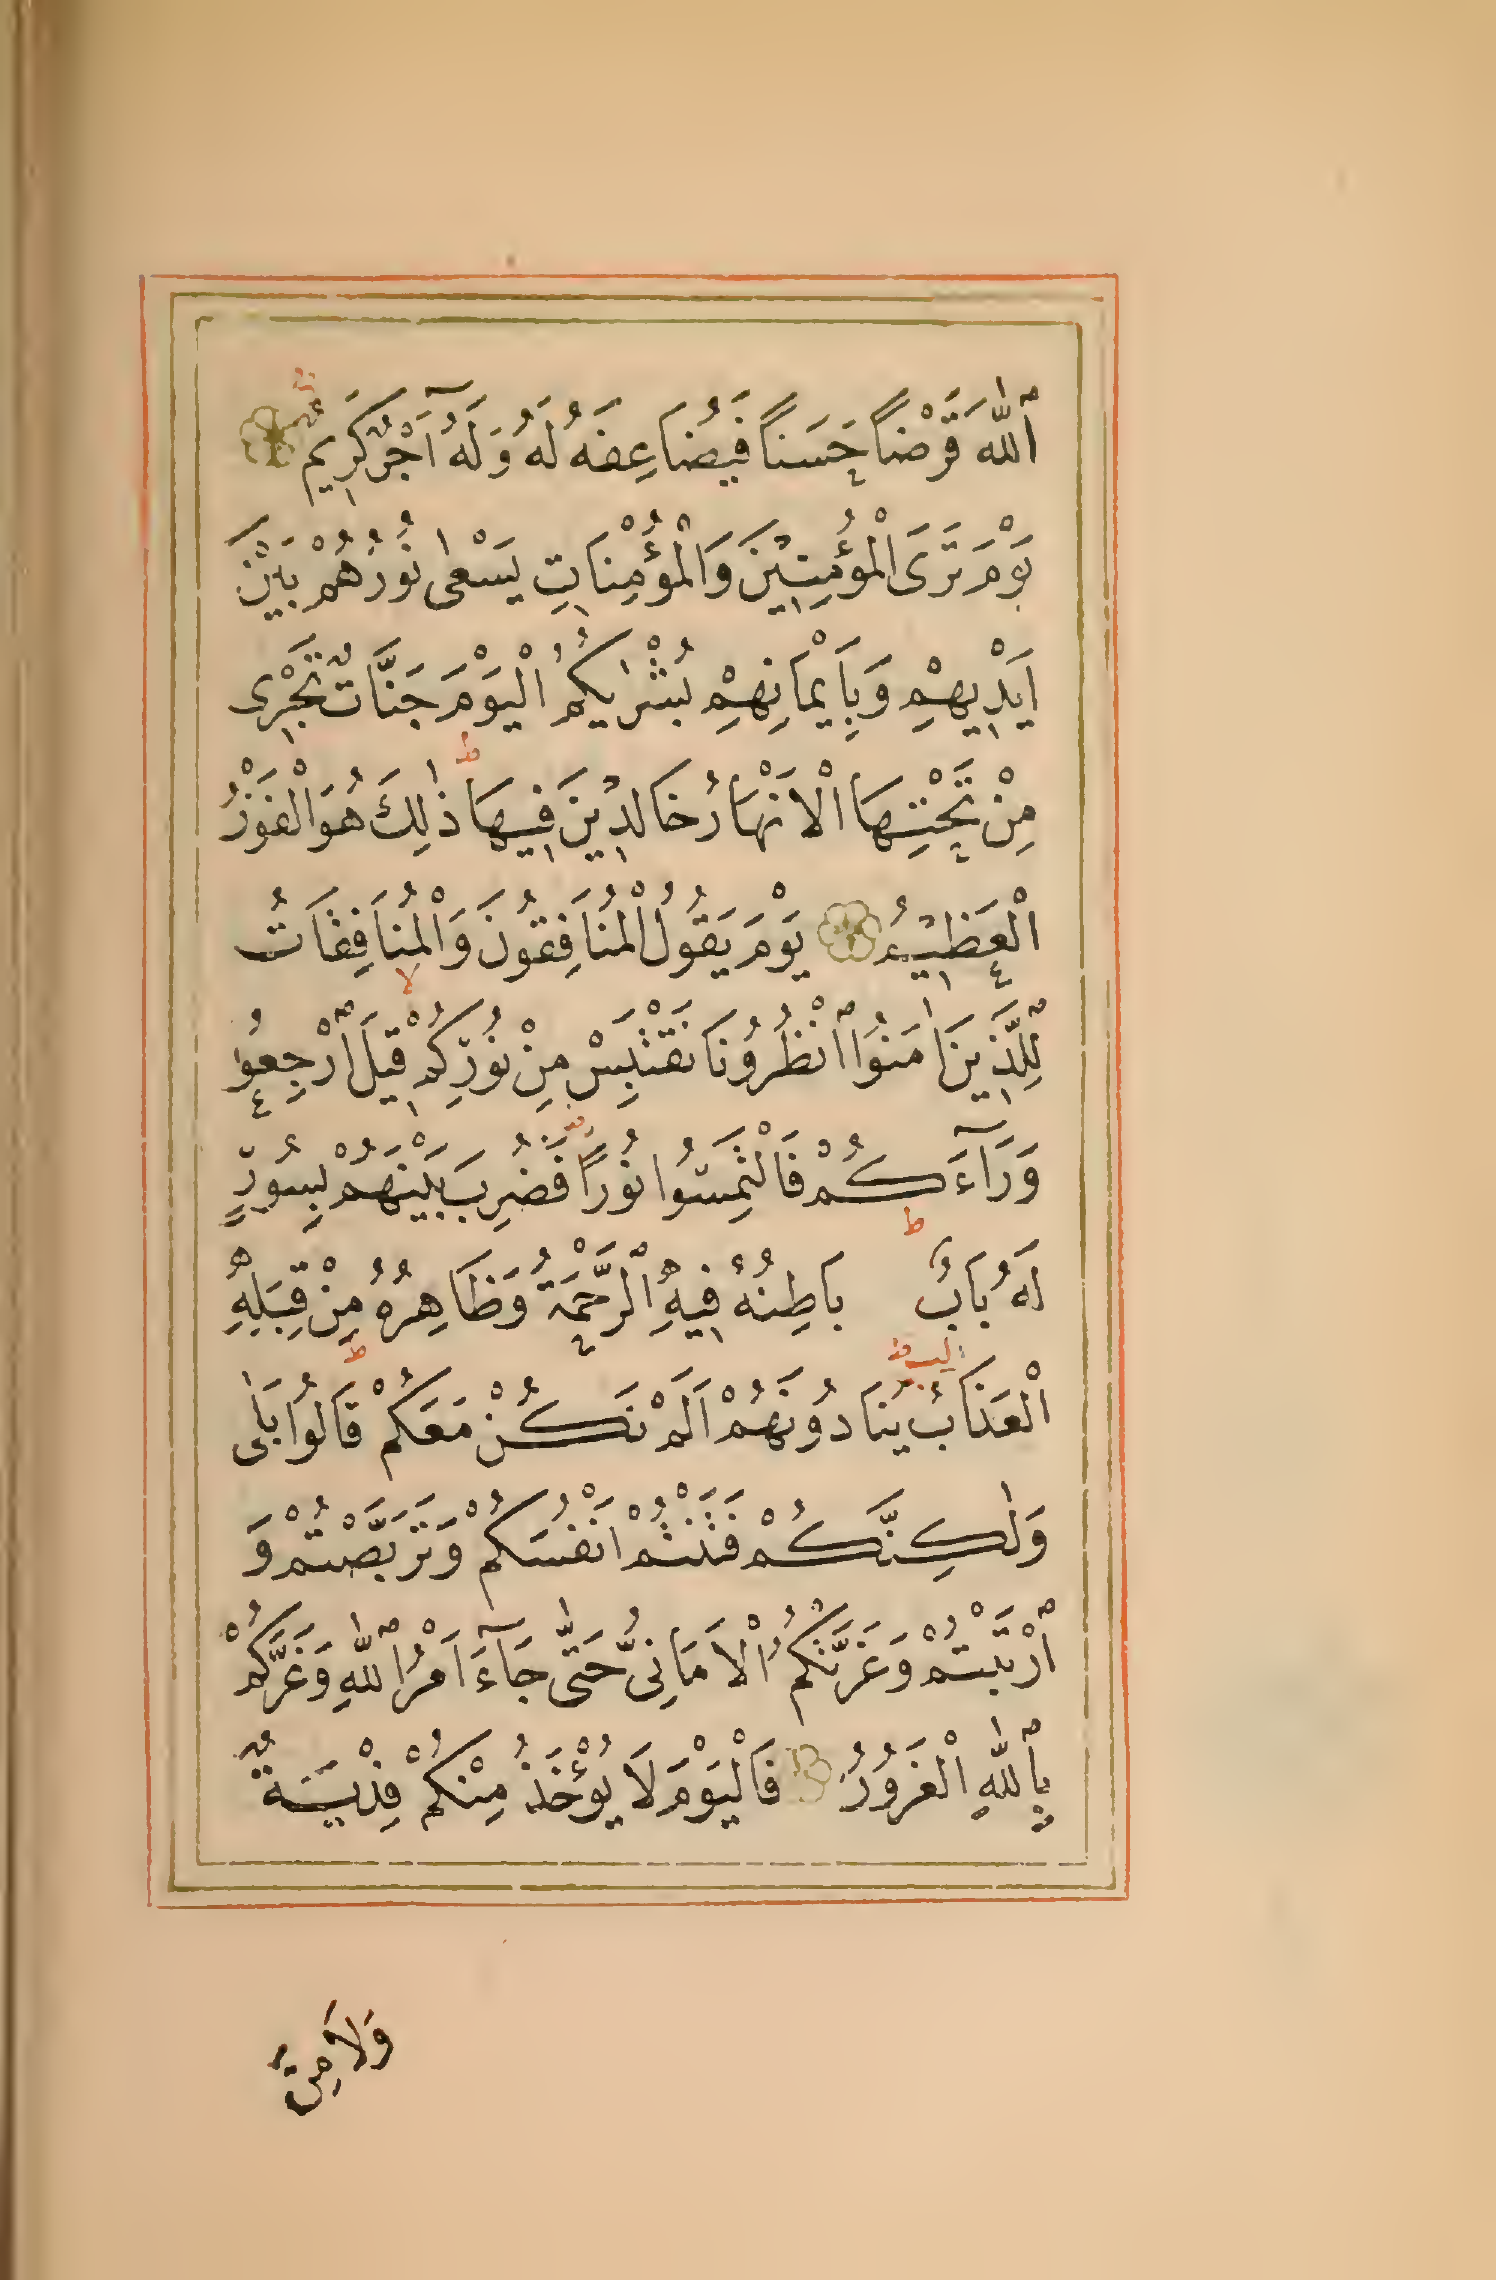 ٱللّٰهَ قَرْضًا حَسَنًا فَيُضَاعِفَهُ لَهُ وَلَهُٓ اَجْرٌ كَرِيمٌ
يَوْمَ تَرَى الْمُؤْمِنِيْنَ وَالْمُؤْمِنَاتِ يَسْعٰى نُوْرُهُمْ بَيْنَ
اَيْدِيهِمْ وَبِاَيْمَانِهِمْ بُشْرٰيكُمُ الْيَوْمَ جَنَّاتٌ تَجْرِى
مِنْ تَحْتِهَا الْاَنْهَارُ خَالِدِيْنَ فِيهَا ط ذٰلِكَ هُوَ الْفَوْزُ
الْعَظِيْمُ يَوْمَ يَقُولُ الْمُنَافِقُونَ وَالْمُنَافِقَاتُ
لِلَّذِينَ اٰمَنُوا ٱنْظُرُونَا نَقْتَبِسْ مِنْ نُورِكُمْ لا قِيلَ ٱرْجِعُوا
وَرَآءَكُمْ فَالْتَمِسُوا نُورًا فَضُرِبَ بَيْنَهُمْ بِسُورٍ
لَهُ بَابٌ ط بَاطِنُهُ فِيهِ الرَّحْمَةُ وَظَاهِرُهُ مِنْ قِبَلِهِ
الْعَذَابُ ط يُنَادُونَهُمْ اَلَمْ نَكُنْ مَعَكُمْ ط قَالُوا بَلٰى
وَلٰكِنَّكُمْ فَتَنْتُمْ اَنْفُسَكُمْ وَتَرَبَّصْتُمْ وَ
ٱرْتَبْتُمْ وَغَرَّتْكُمُ الْاَمَانِىُّ حَتّٰى جَآءَ اَمْرُ ٱللّٰهِ وَغَرَّكُمْ
بِٱللّٰهِ الْغَرُورُ فَالْيَوْمَ لَا يُؤْخَذُ مِنْكُمْ فِدْيَةٌ
وَلَا مِنَ